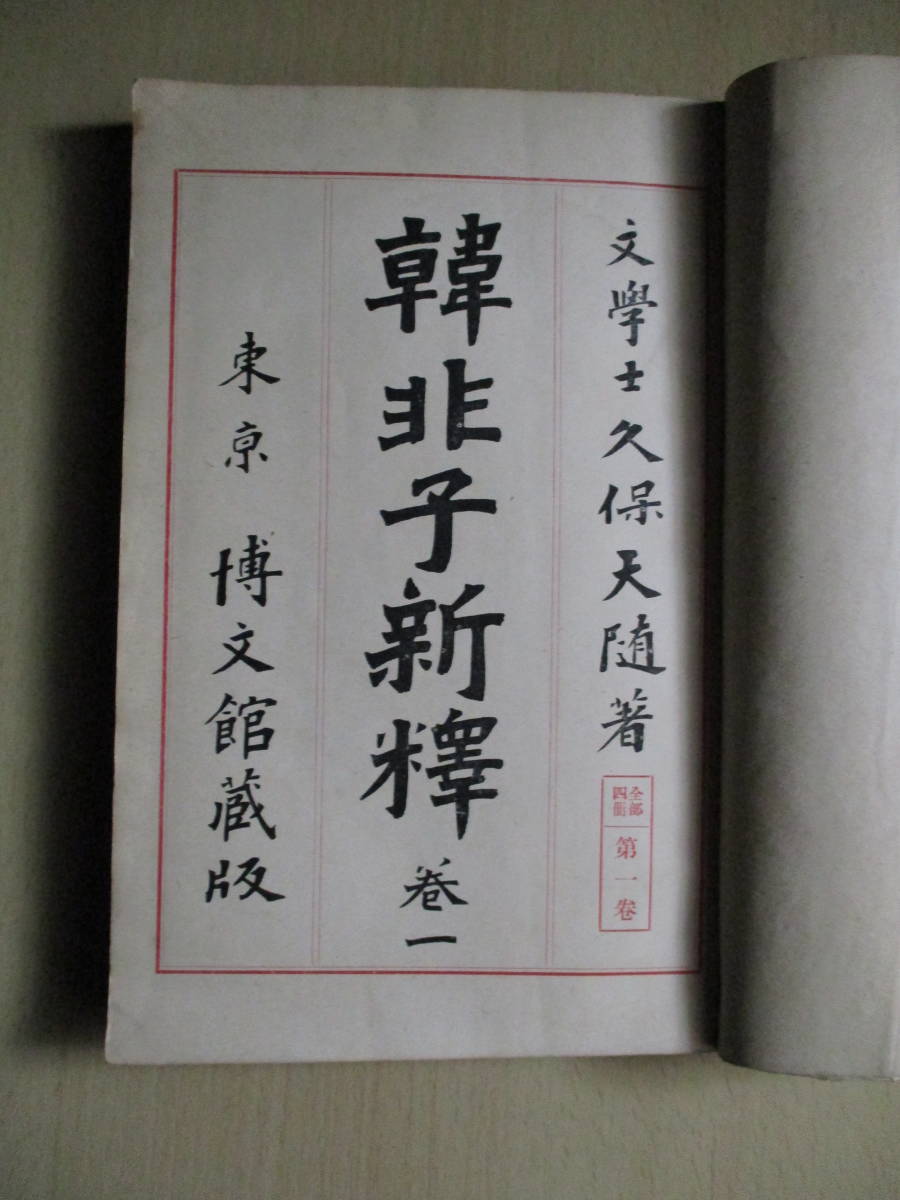 文學士久保天随著
全部
四冊
第一卷
韓非子新釋 卷一
東京 博文館藏版